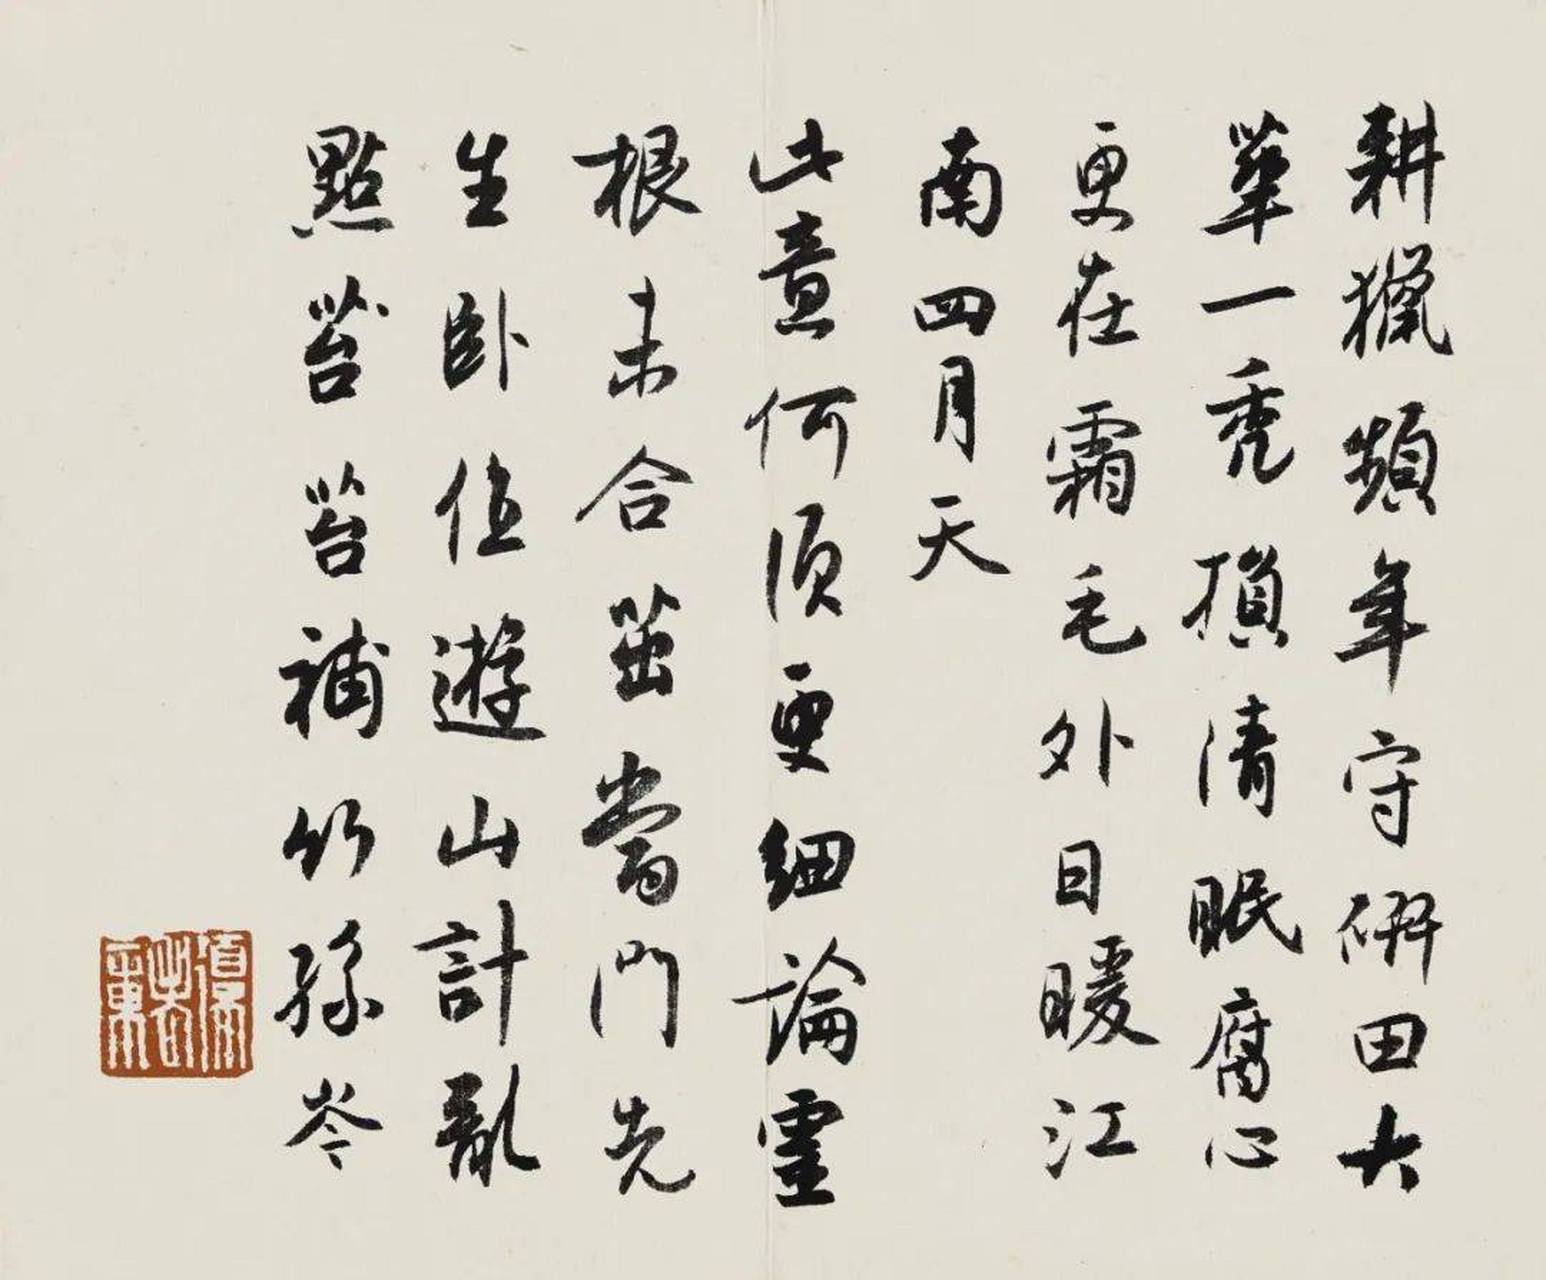 耕獵頻年守研田大
筆一禿損清眠腐心
更在霜毛外日暖江
南四月天
此意何須更細論靈
根未合茁當門先
生卧但遊山計亂
點苔苔補竹孫岑